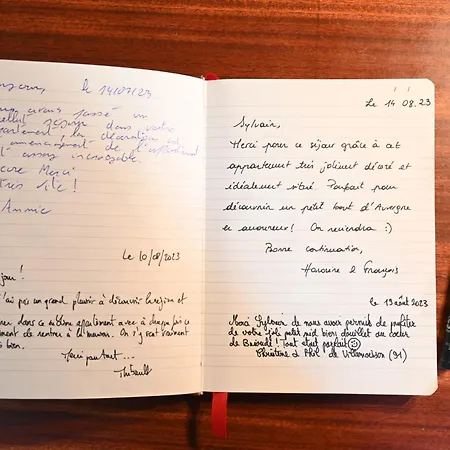 le 14/07/23
avons passé un
séjour dans votre
la décoration
l'aménagement de l'appartement
est assez incroyable.
Merci
très vite !
Annie
Le 10/08/2023
un grand plaisir à découvrir la région et
dans ce sublime appartement avec à chaque fois ce
de rentrer à la maison. On s'y sent vraiment
bien.
Merci pour tout...
Thibault
Le 14 08.23
Sylvain,
Merci pour ce séjour grâce à cet
appartement très joliment décoré et
idéalement situé. Parfait pour
découvrir un petit bout d'Auvergne
en amoureux ! On reviendra :)
Bonne continuation,
& François
le 19 août 2023
Merci Sylvain de nous avoir permis de profiter
de votre joli petit nid bien douillet au cœur
de ! Tout était parfait
Christine & Phil de (91)